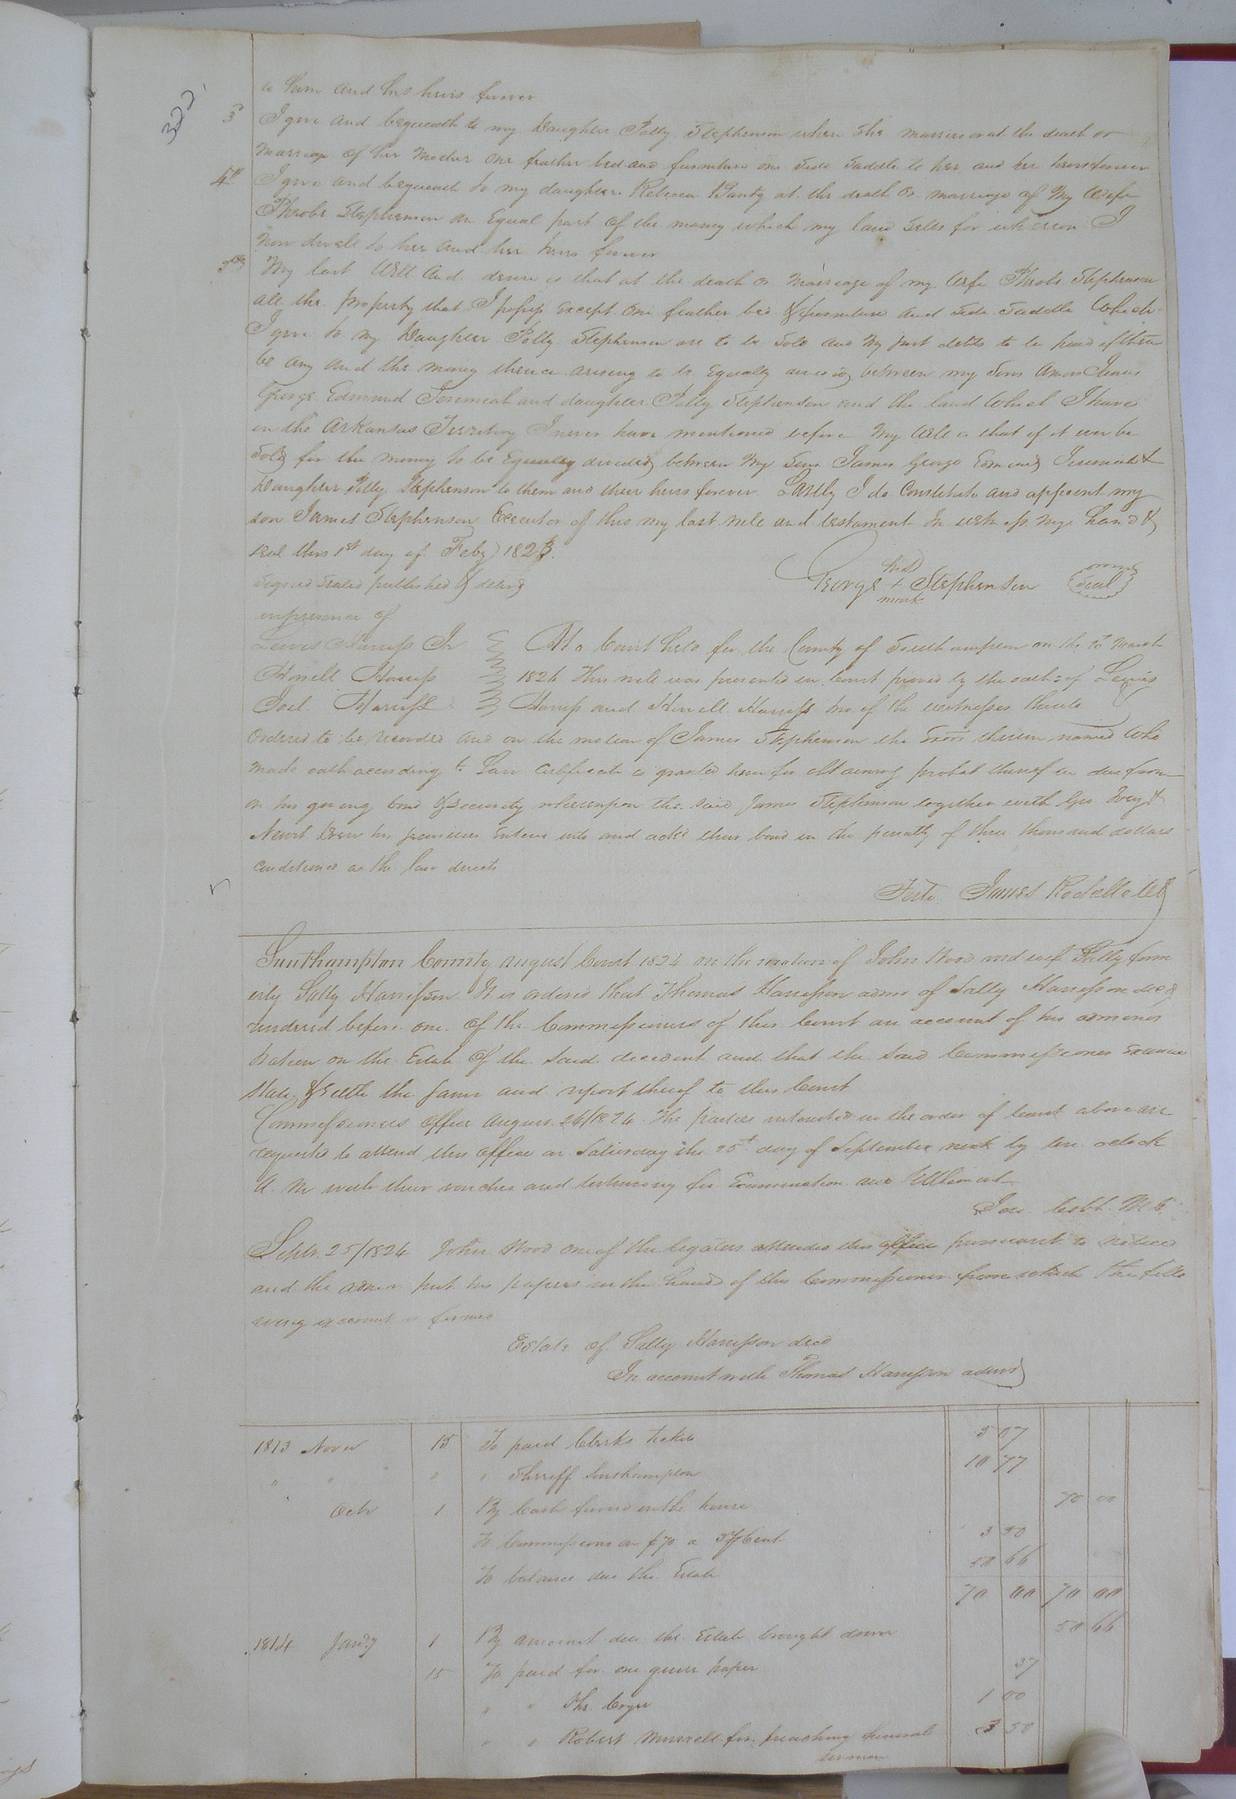 322
to him and his heirs forever
3d I give and bequeath to my Daughter Polly Stephenson when she marries or at the death or
marriage of her Mother one feather bed and furniture one Side Saddle to her and her heirs forever
4th I give and bequeath to my daughter Rebecca at the death or marriage of my Wife
Phoebe Stephenson an Equal part of the money which my land Sells for whereon I
now dwell to her and her heirs forever
5th My last Will and desire is that at the death or marriage of my Wife Phoebe Stephenson
all the property that I possess Except one feather bed & furniture and Side Saddle Which
I give to my Daughter Polly Stephenson are to be Sold and my just debts to be paid if there
be any and the money thence arising to be Equally divided between my Sons James
George Edmund Jeremiah and daughter Polly Stephenson and the land Which I have
in the Arkansas Territory I never have mentioned before My Will is that if it ever be
Sold for the money to be Equally divided between My Sons James George Edmund Jeremiah &
Daughter Polly Stephenson to them and their heirs forever. Lastly I do Constitute and appoint my
son James Stephenson Executor of this my last will and testament In witness my hand &
seal this 1st day of Feby 1823.
Signed Sealed published & delivd George his + mark Stephenson Seal
in presence of
Lewis Harriss Jr At a Court held for the County of Southampton on the March
Howell Harriss 1824 This will was presented in Court proved by the oaths of Lewis
Joel Harriss Harriss and Howell Harriss two of the witnesses thereto
Ordered to be recorded and on the motion of James Stephenson the Exor therein named Who
made oath according to Law certificate is granted him for obtaining probat thereof in due form
on his giving bond & Security whereupon the said James Stephenson together with &
Newit Drew his securities Entered into and ackd their bond in the penalty of three thousand dollars
conditioned as the law directs
Teste James Rochelle Clk
Southampton County August Court 1824 on the motion of John Wood and wife Sally form
erly Sally Harrisson It is ordered that Thomas Harrisson admr of Sally Harrisson decd
rendered before one of the Commissioners of this Court an account of his adminis
tration on the Estate of the Said decedent and that the Said Commissioner Examine
State & Settle the Same and report thereof to this Court
Commissioners Office August 26/1824 The parties interested in the order of Court above are
requested to attend this office on Saturday the 25th day of September next by ten oclock
A. M. with their vouchers and testimony for Examination and Settlement
Cobb M C
Septr. 25/1824 John Wood one of the legatees attended this office pursuant to notice
and the admr put his papers in the hands of this Commissioner from which the follo
wing account is formed
Estate of Sally Harrisson decd
In account with Thomas Harrisson admr
1813 Novr 15 To paid Clerks tickets 5 07
" " " " Sheriff Southampton 10 77
Octr 1 By Cash found in the house 70 00
To Commissions on $70 a 5 pr Cent 3 50
To balance due the Estate 50 66
70 00 70 00
1814 Jany 1 By amount due the Estate brought down 50 66
15 To paid for one quire paper 37
" " Ths. 1 00
" " Robert Murrell for preaching funeral 3 50
sermon